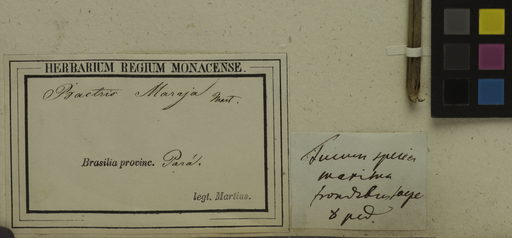 HERBARIUM REGIUM MONACENSE.
Bactris Maraja Mart.
Brasilia provinc. Pará.
legt. Martius.
species
maxima
frondibus saepe
8 ped.